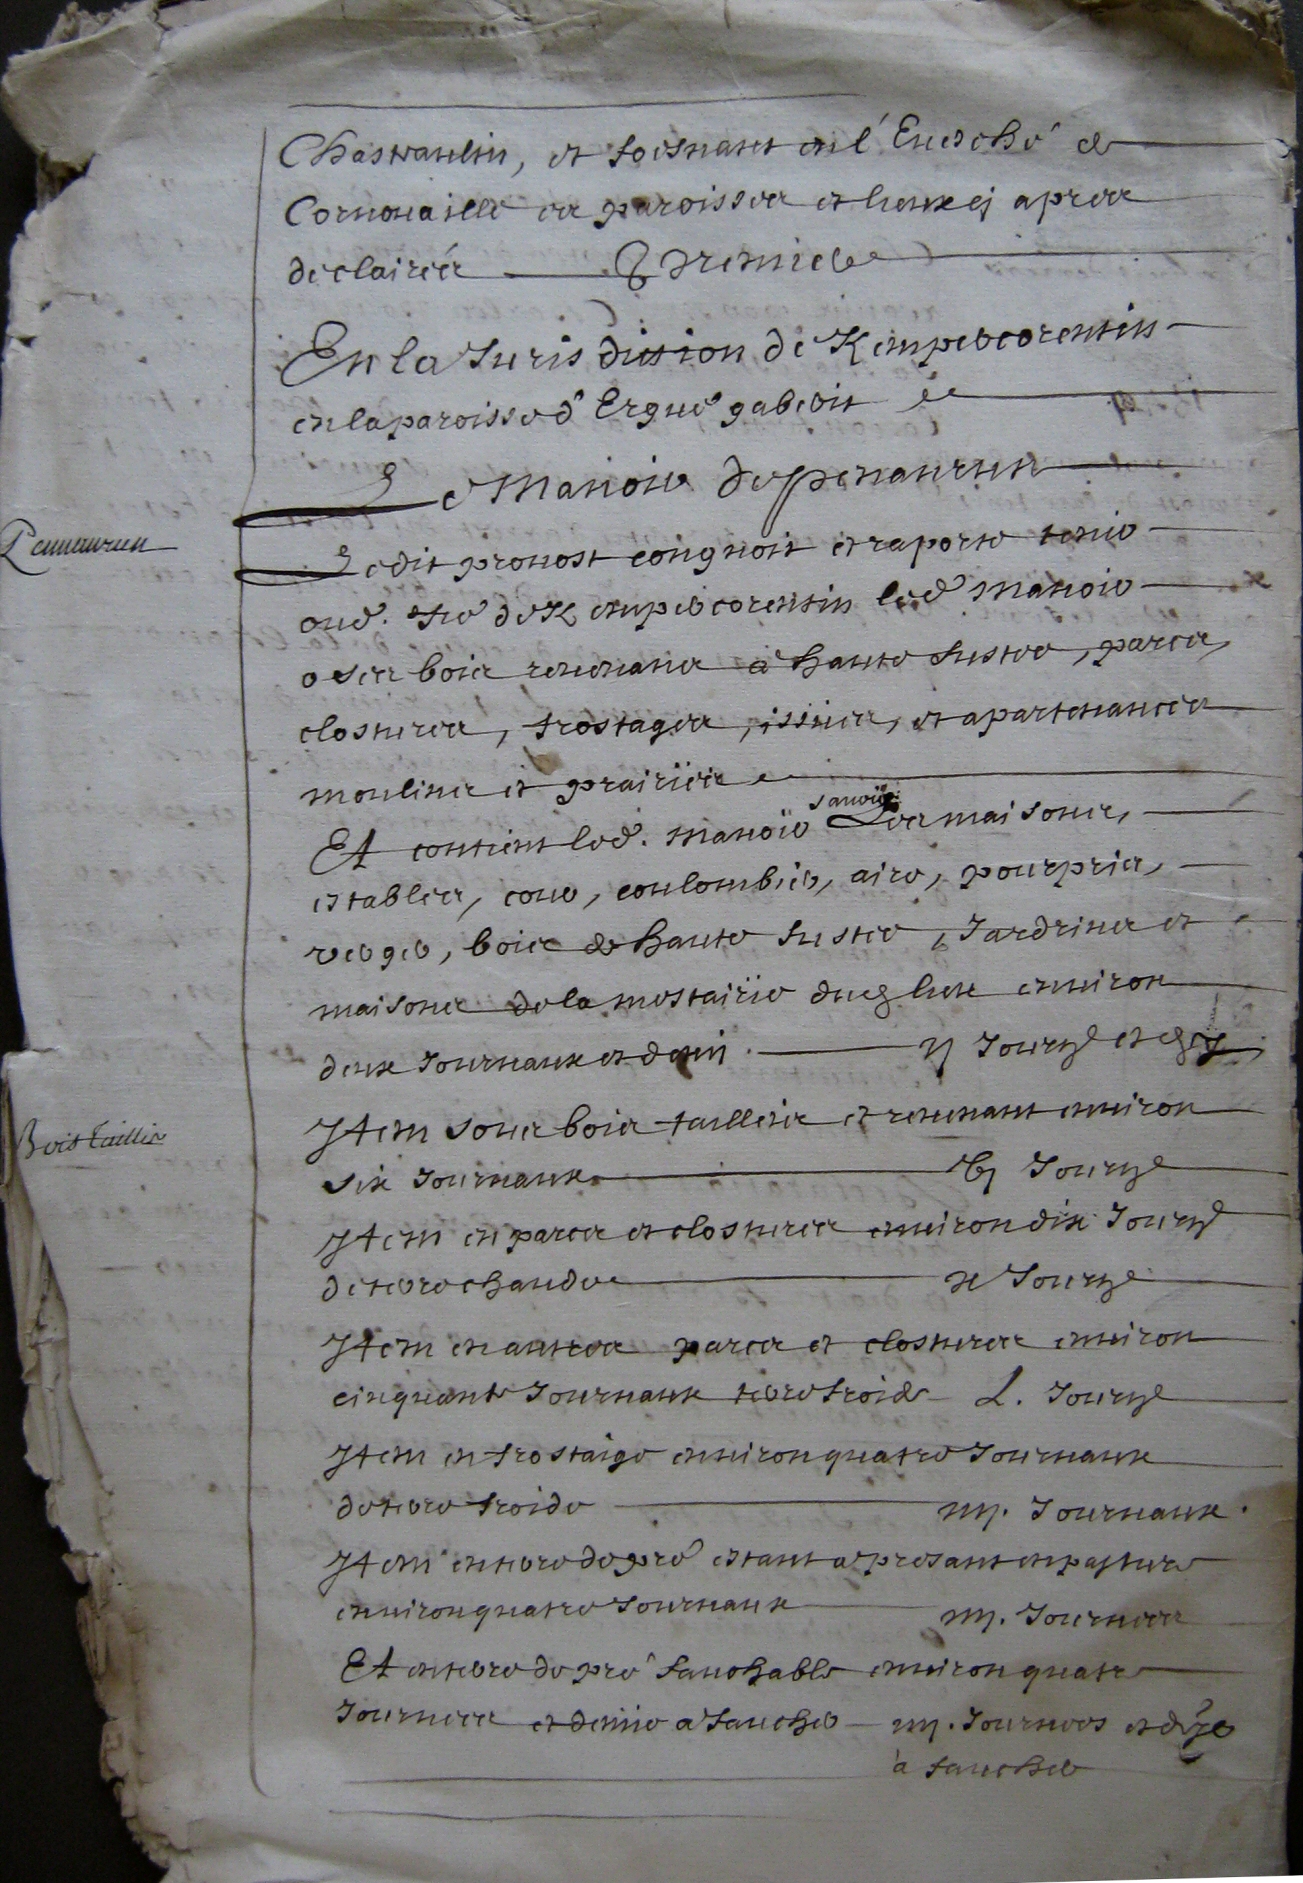 Chastaulin, et foesnant en l'Euesché de
Cornouaille es paroisses et lieux cy apres
declairés Premier
En la Jurisdission de Kempercorentin
en la paroisse d'Ergué gaberit
Le Manoir de penanrun
Penanrun
Ledit prouost congnoit et raporte tenir
oud. fié de Kempercorentin led manoir
o ses bois reuenans à haute fustee, parcs,
closturees, frostages, issues, et apartenances
moulins et prairies
Et contient led. manoir sauoir Les maisons,
estables, cour, coulombier, aire, pourpris,
verger, bois de haute fustee, Jardrins et
maisons de la mestairie dueglun enuiron
deux Journaux et demi ij Journ et
Bois taillis
Item soues bois taillis et reuenant enuiron
six Journaux vj Journ
Item en parcs et closturees enuiron dix Journ
de terre chaude x Journ
Item en autres parcs et closturees enuiron
cinquante Journaux terre froide L. Journ
Item en frostaige enuiron quatre Journaux
de terre froide iiij. Journaux.
Item en terre de pré estant a presant en pasture
enuiron quatre Journaux iiij. Journees
Et en terre de pré fauchable enuiron quatre
Journees et demie a faucher iiij. Journees et
à faucher